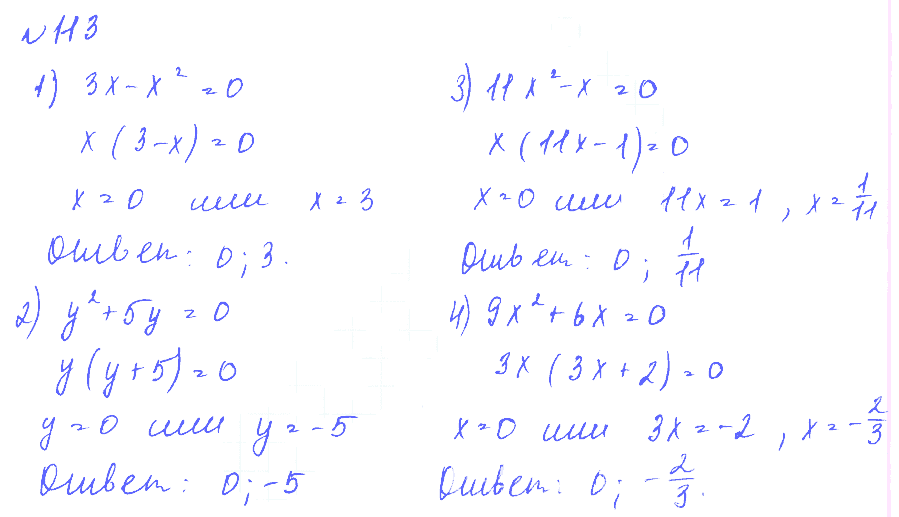 № 113
1) 3x - x² = 0
x (3 - x) = 0
x = 0 или x = 3
Ответ: 0; 3.
2) y² + 5y = 0
y (y + 5) = 0
y = 0 или y = -5
Ответ: 0; -5
3) 11x² - x = 0
x (11x - 1) = 0
x = 0 или 11x = 1, x = 1/11
Ответ: 0; 1/11
4) 9x² + 6x = 0
3x (3x + 2) = 0
x = 0 или 3x = -2, x = -2/3
Ответ: 0; -2/3.